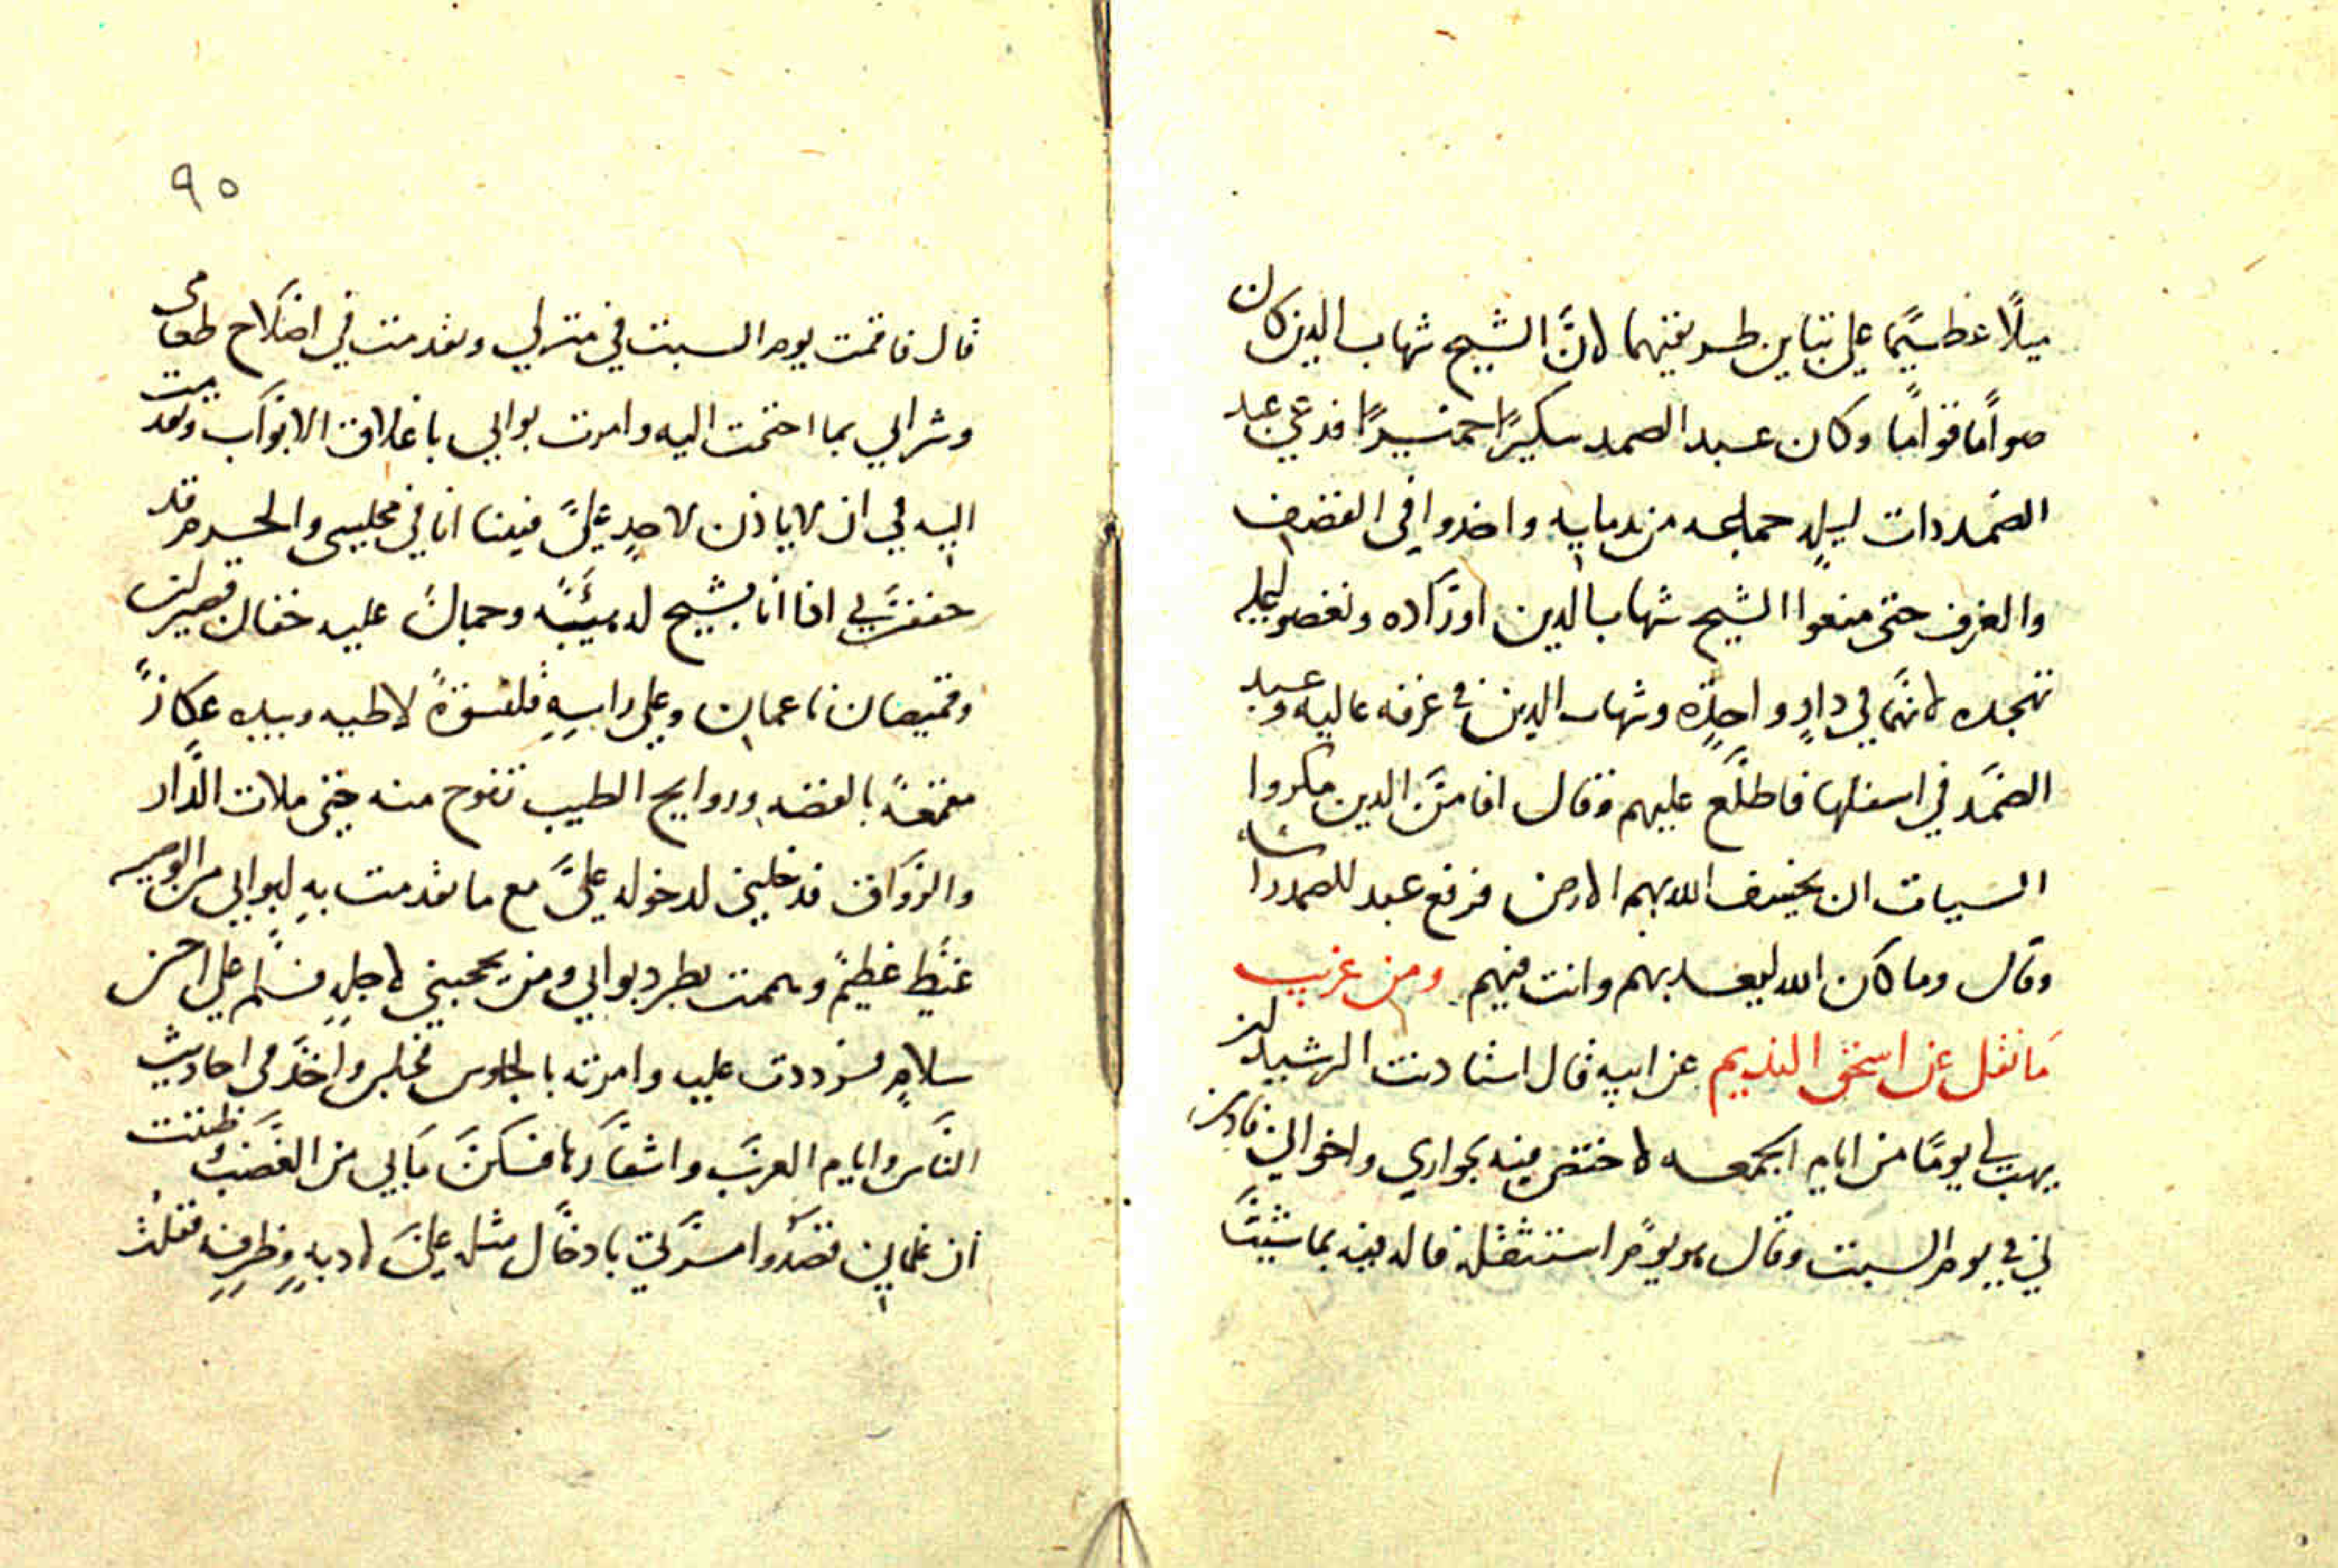 ميلًا عظيمًا علي تباين طريقتهما لانَّ الشيخ شهاب الدين كان
صوامًا قوامًا وكان عبد الصمد سكيرًا خميرًا فدعي عبد
الصمد دات ليلهٍ جماعه من ندمايه واخدوا في القصف
والعزف حتى منعوا الشيخ شهاب الدين اوراده ونغصو ليله
تهجده لانهما في دارٍ واحدٍة وشهاب الدين في غرفه عاليه وعبد
الصمد في اسفلها فاطلَّع عليهم وقال افامن الدين مكروا
السيات ان يخسف الله بهم الارض فرفع عبد الصمد راسه
وقال وما كان الله ليعدبهم وانت فيهم ومن غريب
ما نقل عن اسحق النديم عن ابيه قال استادنت الرشيد ان
يهب لي يومًا من ايام الجمعه لاختص فيه بجواري واخواني فادن
لي في يوم السبت وقال هو يوم استثقله فاله فيه بما شيت
٩٥
قال فاقمت يوم السبت في منزلي وتقدمت في اصلاح طعامي
وشرابي بما احتجت اليه وامرت بوابي باغلاق الابواب وتقدمت
اليه في ان لا ياذن لاحدٍ عليَّ فبينا انا في مجلسي والحرم قد
حففن بي اذا انا بشيخ له هيبًه وجمالٌ عليه خفان قصيران
وقميصان ناعمان وعلي راسهِ قلنسوةً لاطيه وبيده عكازً
مقمعهً بالفضه وروايح الطيب تفوح منه حتى ملات الدَّار
والرواق فدخلني لدخوله عليَّ مع ما تقدمت بهِ لبوابي من الوصيه
غيظ عظيم وهممت بطرد بوابي ومن يحجبني لاجلهِ فسلم علي احسن
سلامٍ فرددت عليه وامرته بالجلوس فجلس واخذ في احاديث
النَّاس وايام العرب واشعارها فسكن ما بي من الغضب وظننت
ان غلماني قصدوا مسرتي بادخال مثله عليَّ لادبهِ وظرفهِ فقلت